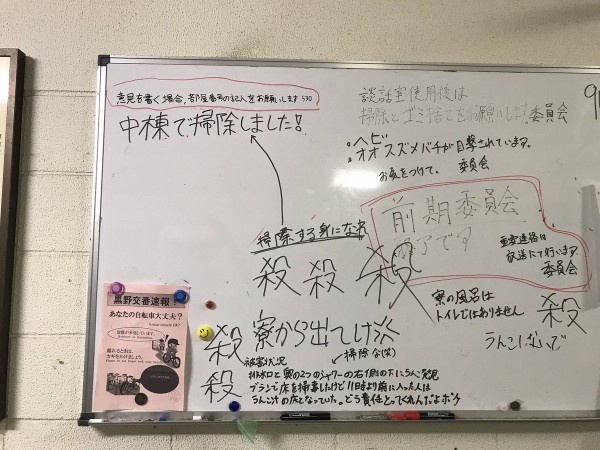 意見を書く場合、部屋番号の記入をお願いします 530
中棟で掃除しました!
談話室使用後は
掃除とゴミ捨てをお願いします 委員会
・ヘビ
・オオスズメバチが目撃されています。
お気をつけて。 委員会
前期委員会
終了です
重要連絡は
放送にて行います。
委員会
掃除する身になれ
殺 殺 殺
寮の風呂は
トイレではありません
殺
うんこしないで
黒野交番速報!
あなたの自転車大丈夫?
殺 寮から出てけ
殺
被害状況
掃除な(笑)
排水口と奥の2つのシャワーの右側の下にうんこ発見
ブラシで床を掃除したけど11日より前に入った人は
うんこ汁の床となっていた。どう責任とってくれんだよボケ